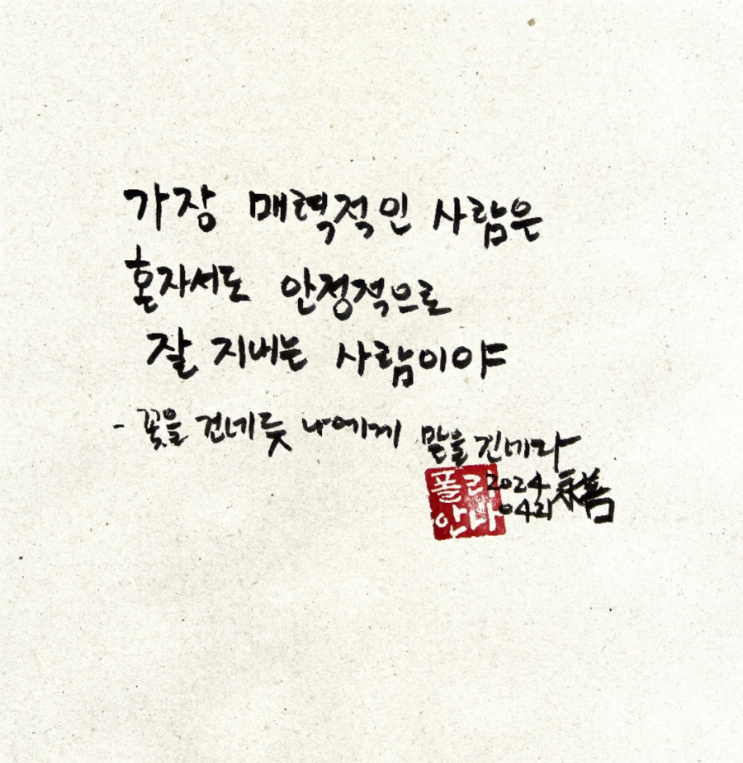 가장 매력적인 사람은
혼자서도 안정적으로
잘 지내는 사람이야
- 꽃을 건네듯 나에게 말을 건네라
폴리 2024 永善
안나 0421